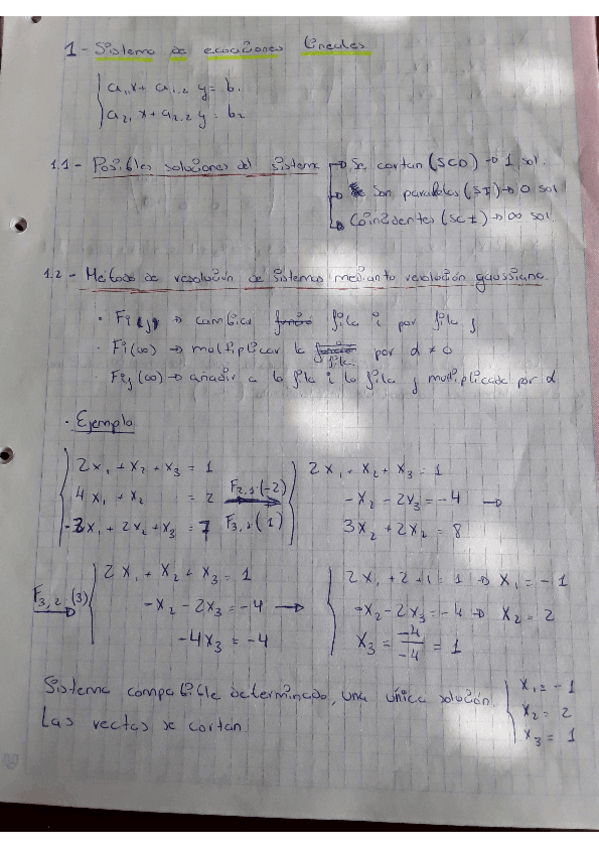 1 - Sistema de ecuaciones lineales
a₁₁x + a₁,₂ y = b₁
a₂₁ x + a₂,₂ y = b₂
1.1 - Posibles soluciones del sistema → Se cortan (SCD) → 1 sol.
→ Son paralelas (SI) → 0 sol
→ Coincidentes (SCI) → ∞ sol.
1.2 - Metodo de resolución de sistemas mediante resolución gaussiana.
· Fi(j) → cambiar fila i por fila j
· Fi(∞) → multiplicar la fila por α ≠ 0
Fij(∞) → añadir a la fila i la fila j multiplicada por α
· Ejemplo
2x₁ + x₂ + x₃ = 1 2x₁ + x₂ + x₃ = 1
4x₁ + x₂ = 2 F₂,₁(-2) -x₂ - 2x₃ = -4 →
-2x₁ + 2x₂ + x₃ = 7 F₃,₁(1) 3x₂ + 2x₂ = 8
F₃,₂(3) 2x₁ + x₂ + x₃ = 1 2x₁ + 2 + 1 = 1 → x₁ = -1
-x₂ - 2x₃ = -4 → -x₂ - 2x₃ = -4 → x₂ = 2
-4x₃ = -4 x₃ = -4/-4 = 1
Sistema compatible determinado, una única solución. x₁ = -1
Las rectas se cortan. x₂ = 2
x₃ = 1